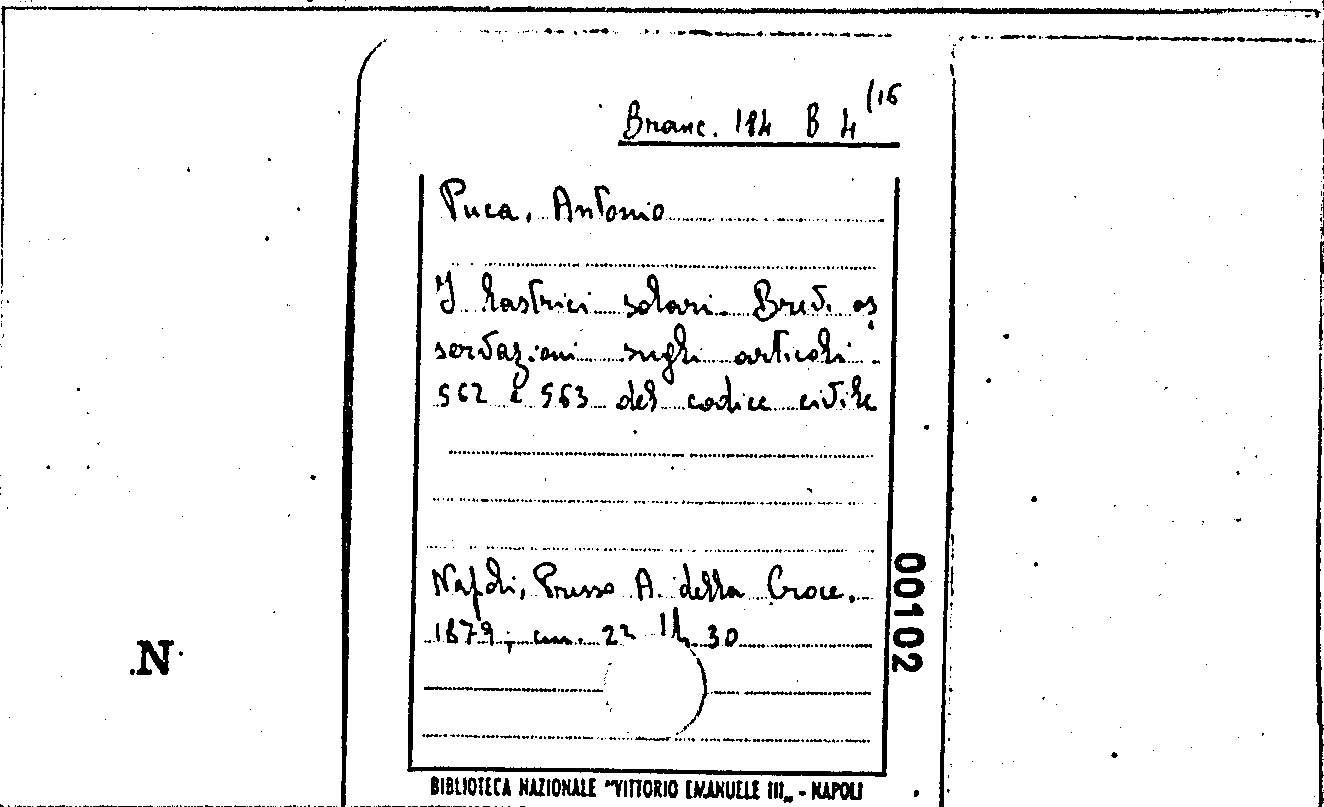 Branc. 184 B 4 (16
Puca, Antonio
I lastrici solari. Brevi os
servazioni sugli articoli
562 e 563 del codice civile
Napoli, Presso A. della Croce,
1879, cm. 22 30
00102
N
BIBLIOTECA NAZIONALE "VITTORIO EMANUELE III„ - NAPOLI